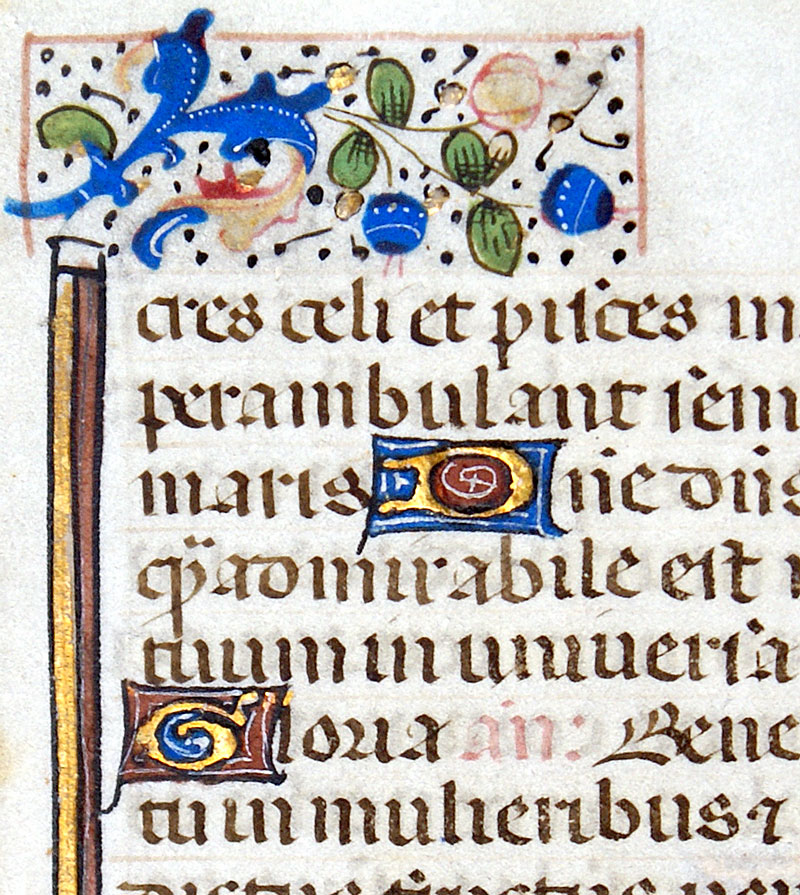 cres celi et pisces
perambulant sem
maris Dn̄e dn̄s
qȝ admirabile est
tuum in universa
Gloria an̄: Bene
tu in mulieribus ⁊
dictus fructus